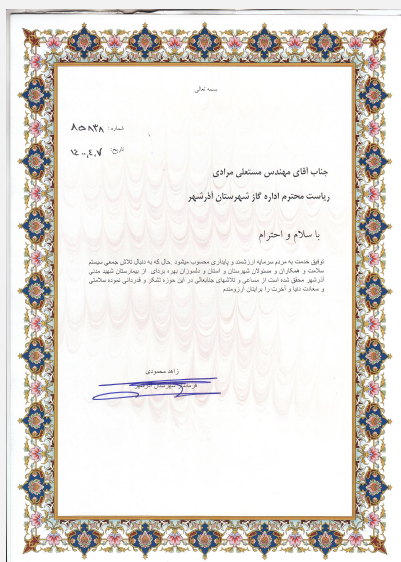 بسمه تعالی
شماره: ۸۵۸۳۸
تاریخ: ۱۴۰۰,۴,۷
جناب آقای مهندس مستعلی مرادی
ریاست محترم اداره گاز شهرستان آذرشهر
با سلام و احترام
توفیق خدمت به مردم سرمایه ارزشمند و پایداری محسوب میشود. حال که به دنبال تلاش جمعی سیستم
سلامت و همکاران و مسئولان شهرستان و استان و دلسوزان بهره برداری از بیمارستان شهید مدنی
آذرشهر محقق شده است از مساعی و تلاشهای جنابعالی در این حوزه تشکر و قدردانی نموده سلامتی
و سعادت دنیا و آخرت را برایتان آرزومندم
زاهد محمودی
فرماندار شهرستان آذرشهر